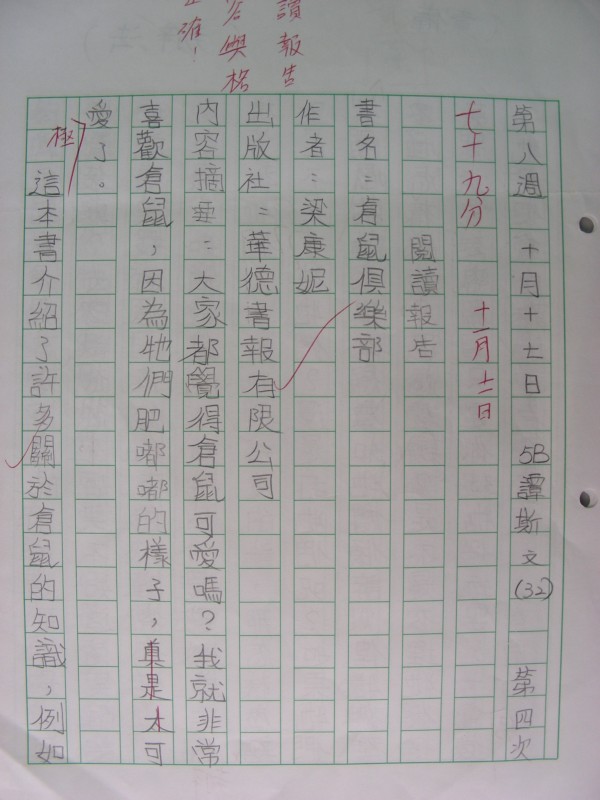 讀報告
第八週 十月十七日 5B譚斯文(32) 第四次
七十九分 十一月十二日
閱讀報告
書名：倉鼠俱樂部
作者：梁康妮
出版社：華德書報有限公司
內容摘要：大家都覺得倉鼠可愛嗎？我就非常
喜歡倉鼠，因為牠們肥嘟嘟的樣子，真是太可
愛了。
極
這本書介紹了許多關於倉鼠的知識，例如